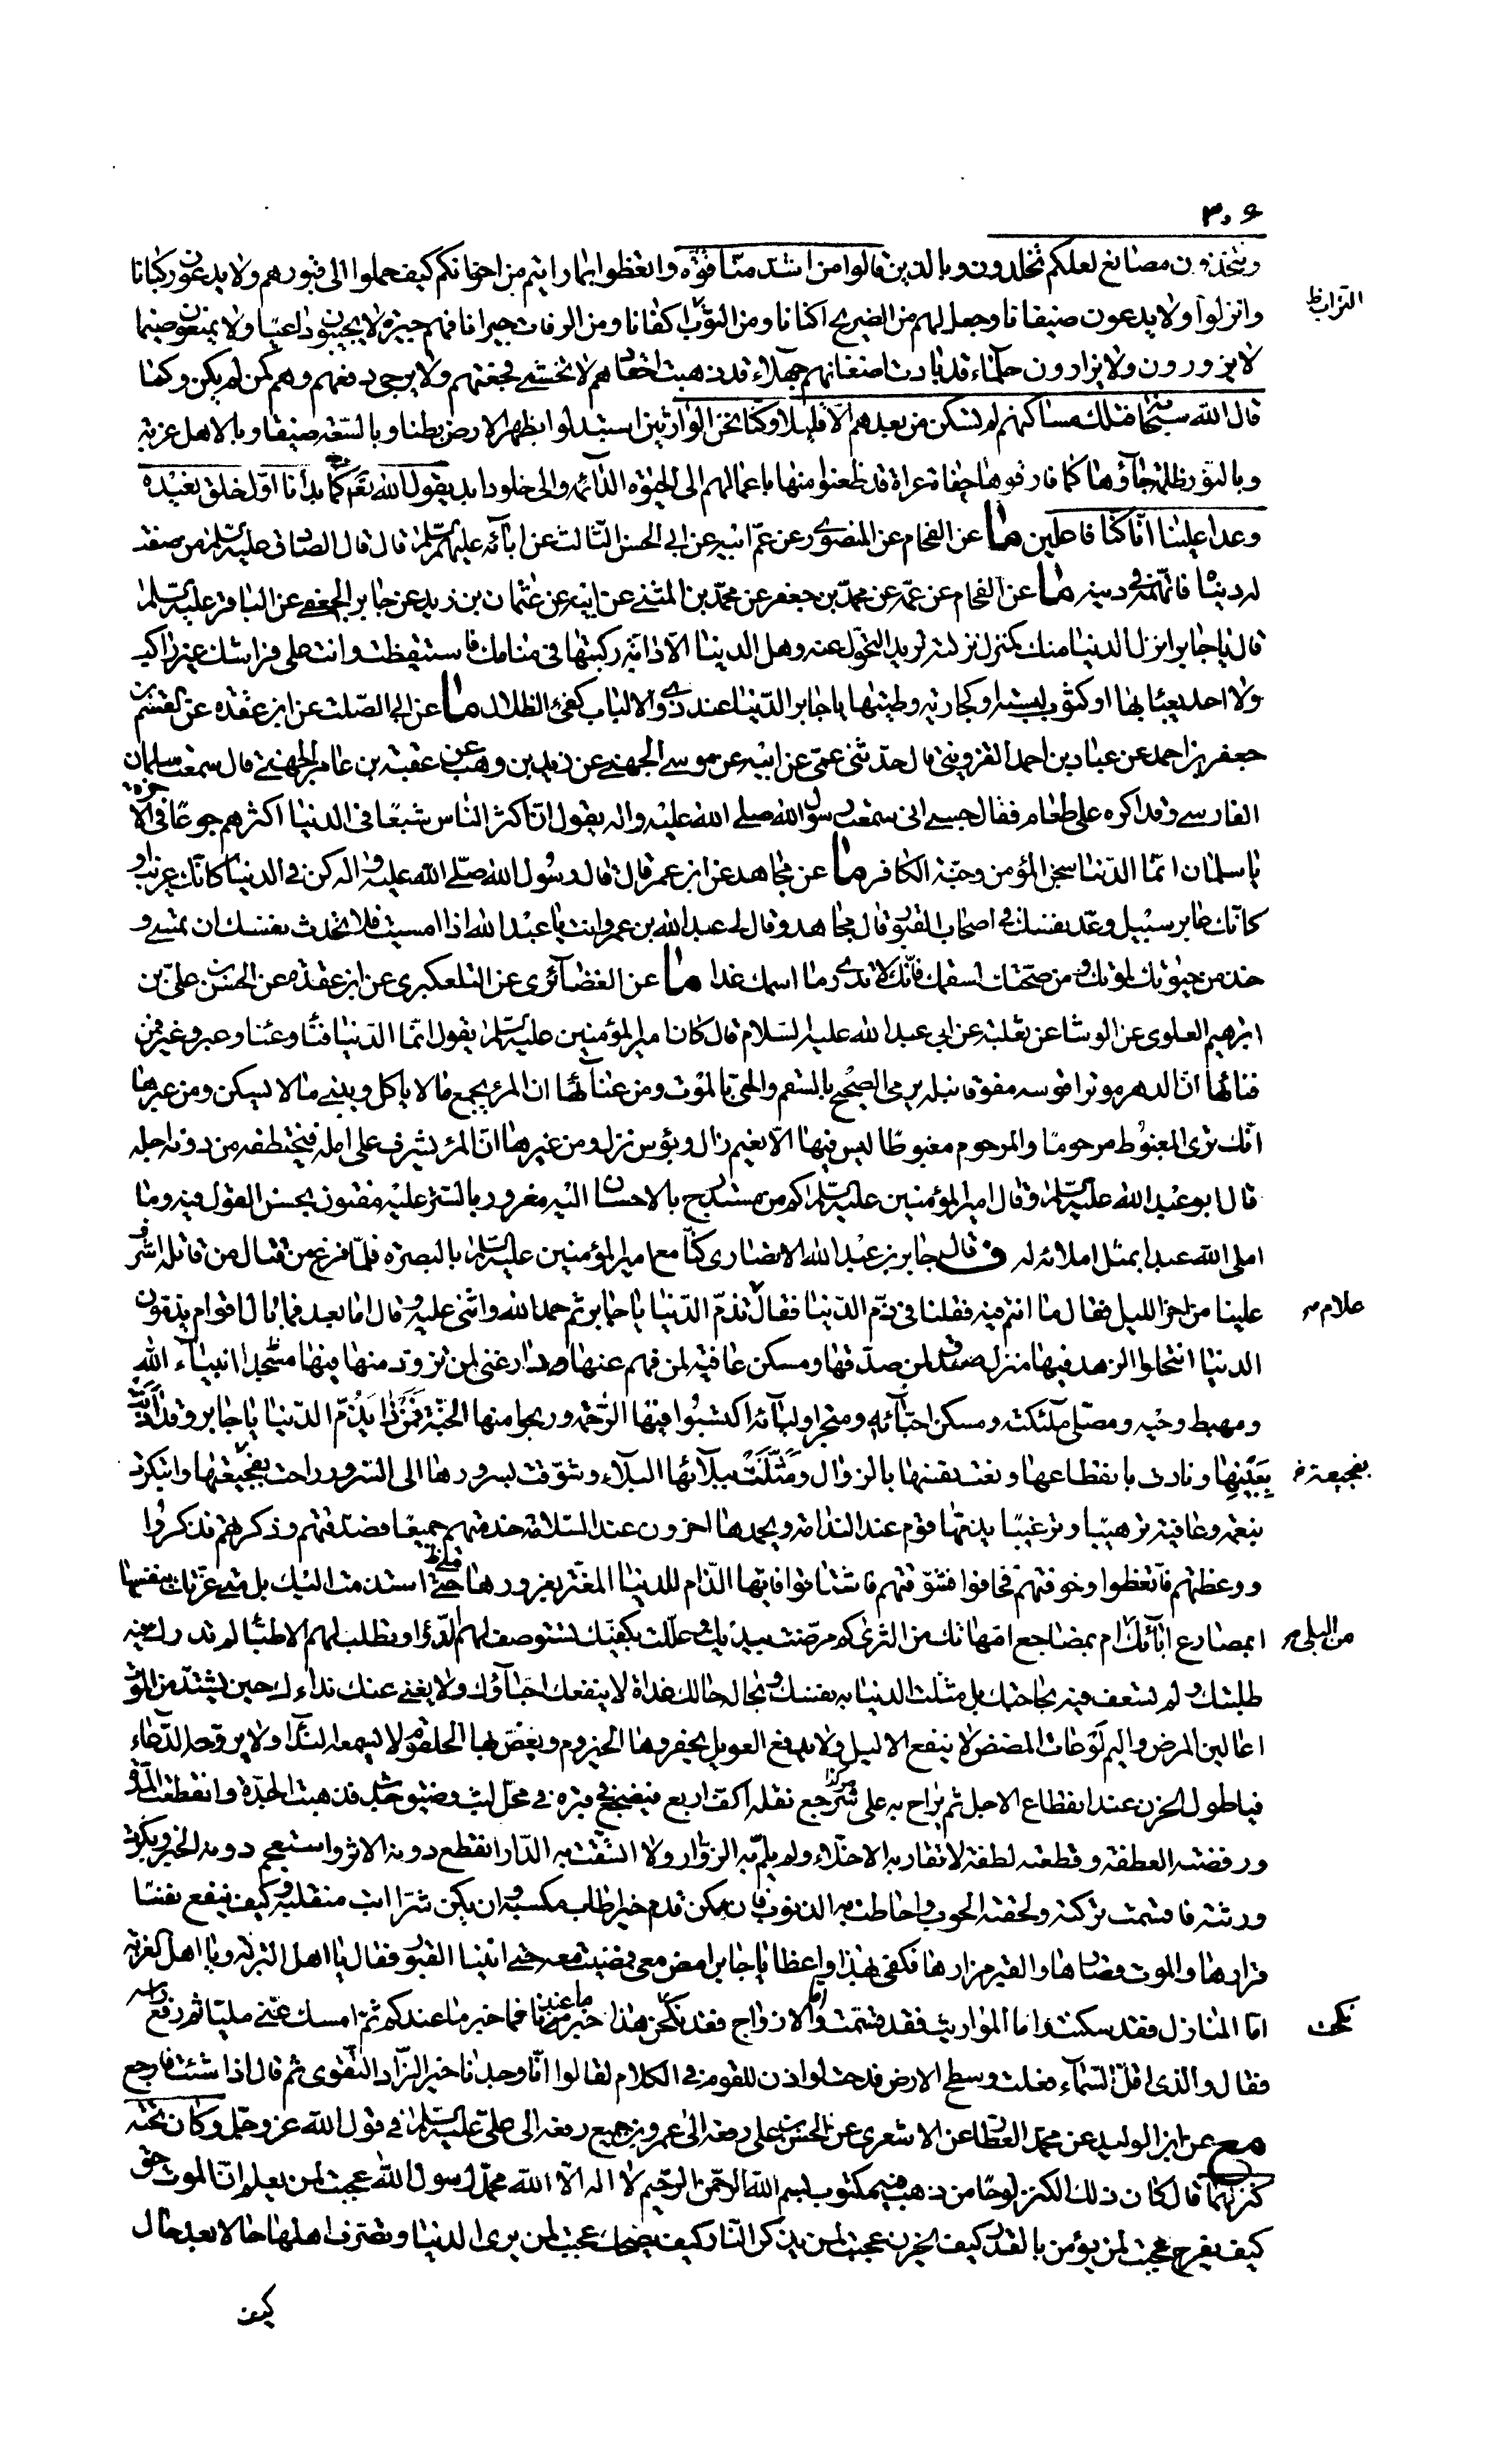 ٣٠٦
وتتخذون مصانع لعلكم تخلدون وبالذين قالوا من اشد منا قوة واتعظوا بما رايتم من اخوانكم كيف حملوا الى قبورهم ولا يدعون ركبانا
وانزلوا ولا يدعون ضيفانا وجعل لهم من الضريح اكنانا ومن التراب اكفانا ومن الرفات جيرانا فهم جيرة لا يجيبون داعيا ولا يمنعون ضيما
التراب ظ
لا يزورون ولا يزارون حلماء قد بادت اضغانهم جهلاء قد ذهبت احقادهم لا تخشى فجعتهم ولا يرجى دفعهم وهم كمن لم يكن وكما
قال الله سبحانه فتلك مساكنهم لم تسكن من بعدهم الا قليلا وكنا نحن الوارثين استبدلوا بظهر الارض بطنا وبالسعة ضيقا وبالاهل غربة
وبالنور ظلمة جاؤها كما فارقوها حفاة عراة قد ظعنوا منها باعمالهم الى الحيوة الدائمة والى خلود ابد يقول الله تع كما بدأنا اول خلق نعيده
وعدا علينا انا كنا فاعلين ما عن الفحام عن المنصوري عن عم ابيه عن ابي الحسن الثالث عن ابائه عليهم السلم قال قال الصادق عليه السلم من صفت
له دنياه فاتهمه في دينه ما عن الفحام عن عمه عن محمد بن جعفر عن محمد بن المثنى عن ابيه عن عثمان بن زيد عن جابر الجعفي عن الباقر عليه السلم
قال يا جابر انزل الدنيا منك كمنزل نزلته تريد التحول عنه وهل الدنيا الا دابة ركبتها في منامك فاستيقظت وانت على فراشك غير راكب
ولا احد يعبئا بها او كثوب لبسته او كجارية وطيتها يا جابر الدنيا عند ذوي الالباب كفئ الظلال ما عن ابي الصلت عن ابن عقده عن القسم بن
جعفر بن احمد عن عباد بن احمد القزويني قال حدثني عمي عن ابيه عن موسى الجهني عن زيد بن وهب عن عقبة بن عامر الجهني قال سمعت سلمان
الفارسي وقد اكره على طعام فقال حسبي اني سمعت رسول الله صلى الله عليه واله يقول ان اكثر الناس شبعا في الدنيا اكثرهم جوعا في الاخرة
يا سلمان انما الدنيا سجن المؤمن وجنة الكافر ما عن مجاهد عن ابن عمر قال قال رسول الله صلى الله عليه واله كن في الدنيا كانك غريب او
كانك عابر سبيل وعد نفسك في اصحاب القبور قال مجاهد وقال لي عبد الله بن عمر وانت يا عبد الله اذا امسيت فلا تحدث نفسك ان تمسي و
خذ من حيوتك لموتك ومن صحتك لسقمك فانك لا تدري ما اسمك غدا ما عن الغضائري عن التلعكبري عن ابن عقده عن الحسن بن علي بن
ابراهيم العلوي عن الوشا عن ثعلبة عن ابي عبد الله عليه السلام قال كان امير المؤمنين عليه السلم يقول انما الدنيا فناء وعناء وعبر وغير فمن
فنائها ان الدهر موتر قوسه مفوق نبله يرمي الصحيح بالسقم والحي بالموت ومن عنائها ان المرء يجمع ما لا ياكل ويبني ما لا يسكن ومن عبرها
انك ترى المغبوط مرحوما والمرحوم مغبوطا ليس فيها الا نعيم زال وبؤس نزل ومن غيرها ان المرء يشرف على امله فيختطفه من دونه اجله
قال ابو عبد الله عليه السلم وقال امير المؤمنين عليه السلم كم من مستدرج بالاحسان اليه مغرور بالستر عليه مفتون بحسن القول فيه وما
املى الله عبدا بمثل املائه له ف قال جابر بن عبد الله الانصاري كنا مع امير المؤمنين عليه السلم بالبصرة فلما فرغ من قتال من قاتله اشرف
علينا من اخر الليل فقال ما انتم فيه فقلنا في ذم الدنيا فقال علام تذم الدنيا يا جابر ثم حمد الله واثنى عليه وقال اما بعد فما بال اقوام يذمون
علام صح
الدنيا انتحلوا الزهد فيها منزل صدق لمن صدقها ومسكن عافية لمن فهم عنها ودار غنى لمن تزود منها فيها مسجد انبياء الله
ومهبط وحيه ومصلى ملئكته ومسكن احبائه ومتجر اوليائه اكتسبوا فيها الرحمة وربحوا منها الجنة فمن ذا يذم الدنيا يا جابر وقد اذنت
ببينها ونادت بانقطاعها ونعت نفسها بالزوال ومثلت ببلائها البلاء وشوقت بسرورها الى السرور راحت بفجيعتها وابتكرت
بفجيعة خ
بنعمة وعافية ترهيبا وترغيبا يذمها قوم عند الندامة ويحمدها اخرون عند السلامة خدمتهم جميعا فصدقتهم وذكرتهم فذكروا
ووعظتهم فاتعظوا وخوفتهم فخافوا وشوقتهم فاشتاقوا فايها الذام للدنيا المغتر بغرورها متى استذمت اليك بل متى غرتك بنفسها
ابمصارع ابائك ام بمضاجع امهاتك من الثرى كم مرضت بيديك وعللت بكفيك تستوصف لهم الدواء وتطلب لهم الاطباء لم تدرك فيه
من البلى صح
طلبتك ولم تسعف فيه بحاجتك بل مثلت الدنيا به نفسك وبحاله حالك غداة لا ينفعك احباؤك ولا يغني عنك نداءك حين يشتد من الموت
اعالين المرض واليم لوعات المضض لا ينفع الاليل ولا يدفع العويل يحفز وها الحيزوم ويغص بها الحلقوم لا يسمعه النداء ولا يروحه الدعاء
فيا طول الحزن عند انقطاع الاجل ثم يراح به على شرجع نقله اكف اربع فيضجع في قبره في محل لبث وضيق جدث فذهبت الجدة وانقطعت المدة
ورفضته العطفة وقطعته اللطفة لا تقاربه الاخلاء ولم يلم به الزوار ولا اتسقت به الدار انقطع دونه الاثر واستعجم دونه الخبر وبكرت
ورثته فاقتسمت تركته ولحقه الحوب واحاطت به الذنوب فان يكن قدم خيرا طاب مكسبه وان يكن شرا تب منقلبه وكيف ينفع نفسا
قرارها والموت قصارها والقبر مزارها فكفى بهذا واعظا يا جابر امض معي فمضيت معه حتى اتينا القبور فقال يا اهل التربة ويا اهل الغربة
اما المنازل فقد سكنت واما المواريث فقد قسمت واما الازواج فقد نكحن هذا خبر ما عندنا فما خبر ما عندكم ثم امسك عني مليا ثم رفع راسه
نكحت
فقال والذي اقل السماء فعلت وسطح الارض فدحت لو اذن للقوم في الكلام لقالوا انا وجدنا خير الزاد التقوى ثم قال اذا شئت فارجع
مع عن ابن الوليد عن محمد العطار عن الاشعري عن الحسن بن علي رفعه الى عمرو بن جميع رفعه الى علي عليه السلم في قول الله عز وجل وكان تحته
كنز لهما قال كان ذلك الكنز لوحا من ذهب فيه مكتوب بسم الله الرحمن الرحيم لا اله الا الله محمد رسول الله عجبت لمن يعلم ان الموت حق
كيف يفرح عجبت لمن يؤمن بالقدر كيف يحزن عجبت لمن يذكر النار كيف يضحك عجبت لمن يرى الدنيا وتصرف اهلها حالا بعد حال
كيف